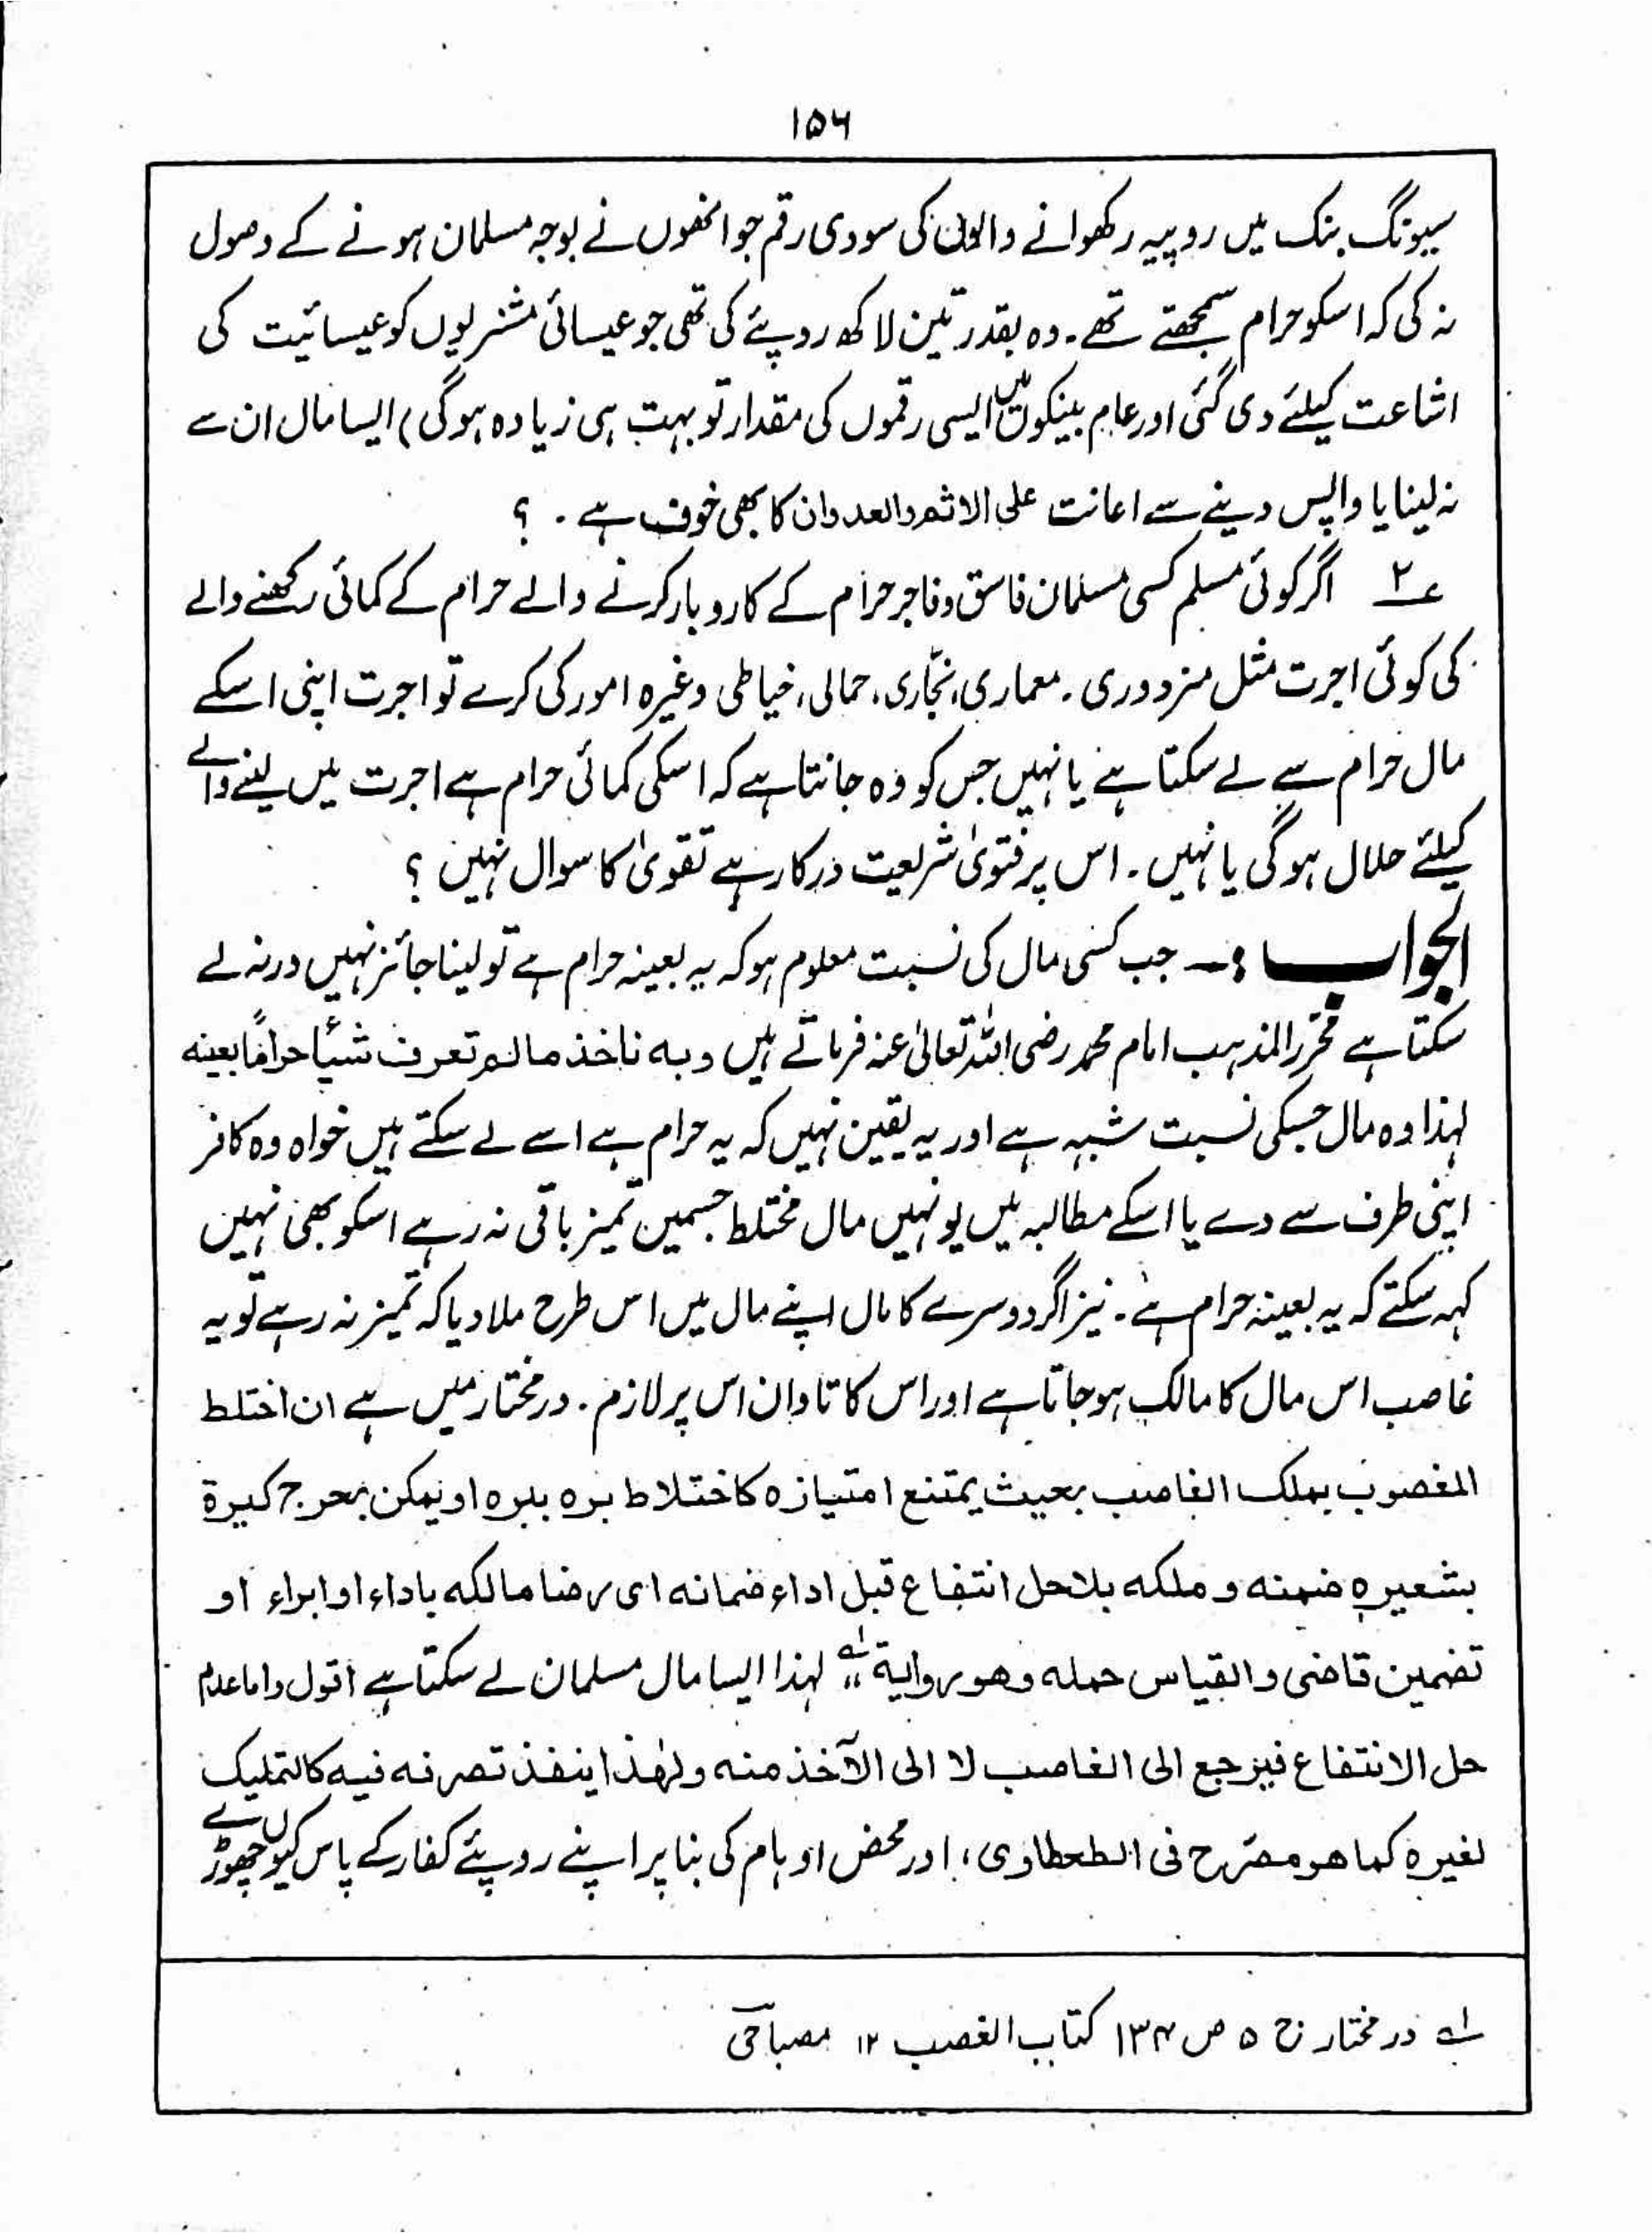 ۱۵۶
سیونگ بنک میں روپیہ رکھوانے والوں کی سودی رقم جو انھوں نے بوجہ مسلمان ہونے کے وصول
نہ کی کہ اسکو حرام سمجھتے تھے۔ وہ بقدر تین لاکھ روپئے کی تھی جو عیسائی مشنریوں کو عیسائیت کی
اشاعت کیلئے دی گئی اور عام بینکوں میں ایسی رقموں کی مقدار تو بہت ہی زیادہ ہوگی) ایسا مال ان سے
نہ لینا یا واپس دینے سے اعانت علی الاثم والعدوان کا بھی خوف ہے ۔ ؟
۲؎ اگر کوئی مسلم کسی مسلمان فاسق و فاجر حرام کے کاروبار کرنے والے حرام کے کمائی رکھنے والے
کی کوئی اجرت مثل مزدوری ۔ معماری، نجّاری، حمالی، خیاطی وغیرہ امور کی کرے تو اجرت اپنی اسکے
مال حرام سے لے سکتا ہے یا نہیں جس کو وہ جانتا ہے کہ اسکی کمائی حرام ہے اجرت میں لینے والے
کیلئے حلال ہوگی یا نہیں ۔ اس پر فتویٰ شریعت درکار ہے تقویٰ کا سوال نہیں ؟
الجواب :۔ جب کسی مال کی نسبت معلوم ہو کہ یہ بعینہ حرام ہے تو لینا جائز نہیں ورنہ لے
سکتا ہے محرّر المذہب امام محمد رضی اللہ تعالیٰ عنہ فرماتے ہیں وبه ناخذ مالم تعرف شیأً حراماً بعینه
لہذا وہ مال جسکی نسبت شبہہ ہے اور یہ یقین نہیں کہ یہ حرام ہے اسے لے سکتے ہیں خواہ وہ کافر
اپنی طرف سے دے یا اسکے مطالبہ میں یونہیں مال مختلط جسمیں تمیز باقی نہ رہے اسکو بھی نہیں
کہہ سکتے کہ یہ بعینہ حرام ہے ۔ نیز اگر دوسرے کا مال اپنے مال میں اس طرح ملا دیا کہ تمیز نہ رہے تو یہ
غاصب اس مال کا مالک ہو جاتا ہے اور اس کا تاوان اس پر لازم ۔ درمختار میں ہے ان اختلط
المغصوب بملک الغاصب بحیث یمتنع امتیازہ کاختلاط بره ببره او یمکن بحرج کبرة
بشعیرہ ضمنه و ملکه بلاحل انتفاع قبل اداء ضمانه ای رضا مالکه باداء او ابراء او
تضمین قاضی والقیاس حمله وهو روایة ۱؎ لہذا ایسا مال مسلمان لے سکتا ہے اقول واما عدم
حل الانتفاع فیرجع الی الغاصب لا الی الآخذ منه ولہٰذا ینفذ تصرفه فیه کالتملیک
لغیرہ کما هو مصرّح فی الطحطاوی، اور محض اوہام کی بنا پر اپنے روپئے کفار کے پاس کیوں چھوڑے
۱؎ درمختار ج ۵ ص ۱۳۴ کتاب الغصب ۱۲ مصباحی